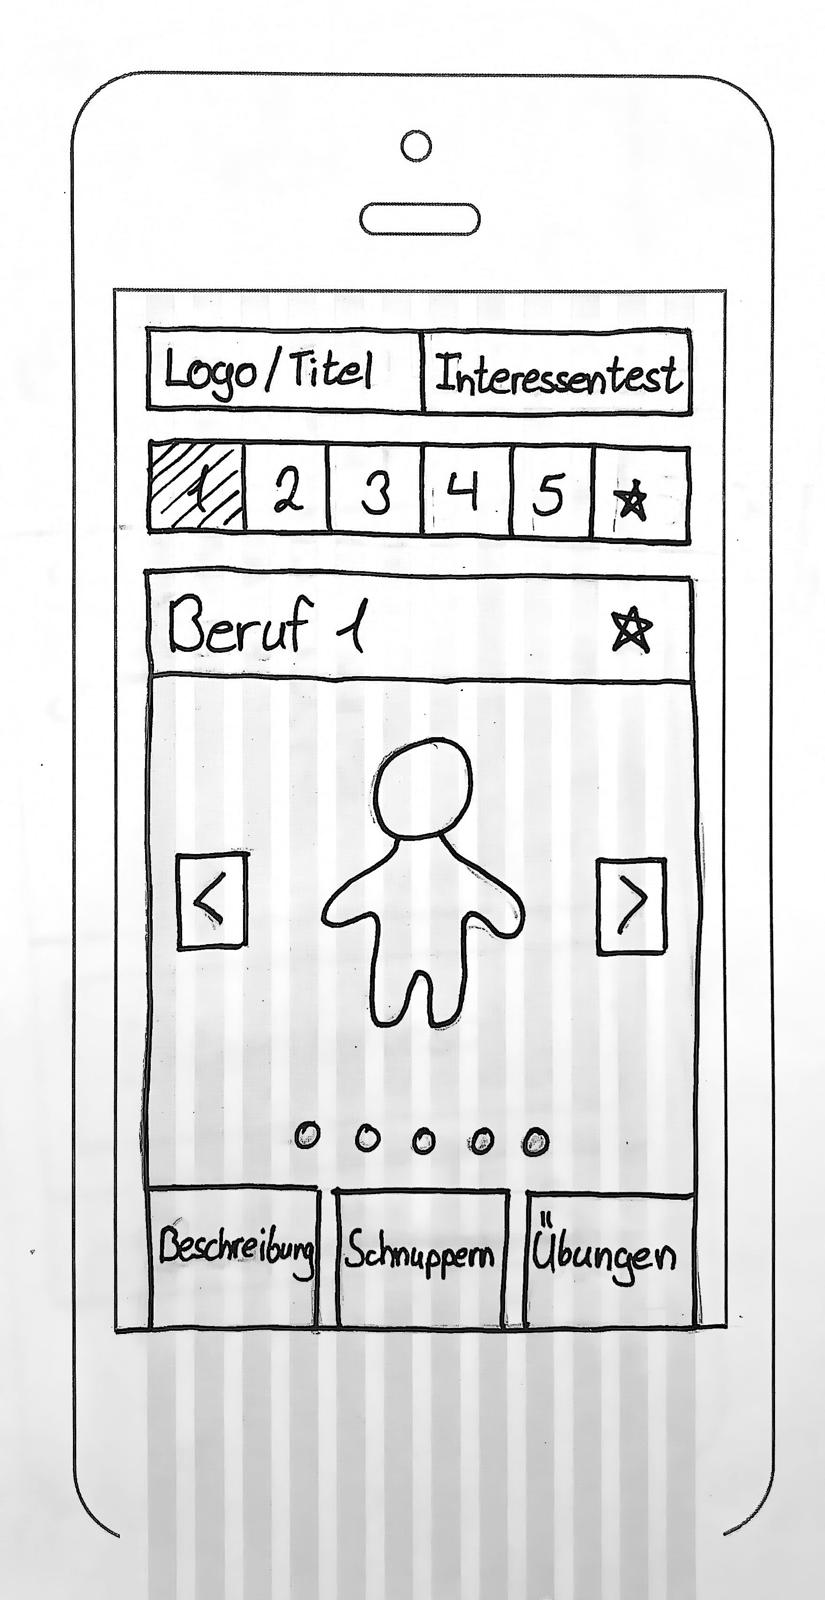 Logo/Titel Interessentest
1 2 3 4 5
Beruf 1
< >
Beschreibung Schnuppern Übungen